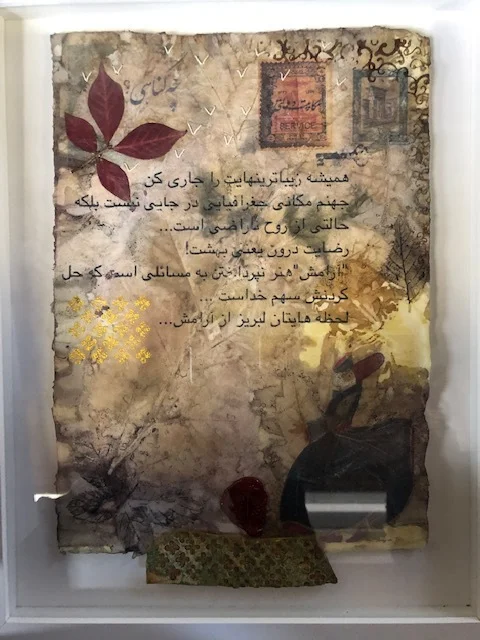 SERVICE
همیشه زیباترینهایت را جاری کن
جهنم مکانی جغرافیایی در جایی نیست بلکه
حالتی از روح ناراضی است...
رضایت درون یعنی بهشت!
"آرامش"هنر نپرداختن به مسائلی است که حل
کردنش سهم خداست ...
لحظه هایتان لبریز از آرامش...